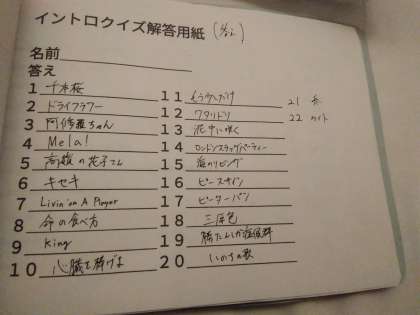 イントロクイズ解答用紙 (答え)
名前
答え
1 千本桜
2 ドライフラワー
3 阿修羅ちゃん
4 Mela!
5 高嶺の花子さん
6 キセキ
7 Livin' on A Prayer
8 命の食べ方
9 King
10 心臓を捧げよ
11 もう少しだけ
12 ワタリドリ
13 花に咲く
14 ロンドンスラッグパーティー
15 海のリビング
16 ピースサイン
17 ピーターパン
18 三原色
19 勝たんしか症候群
20 いのちの歌
21
22 カイト